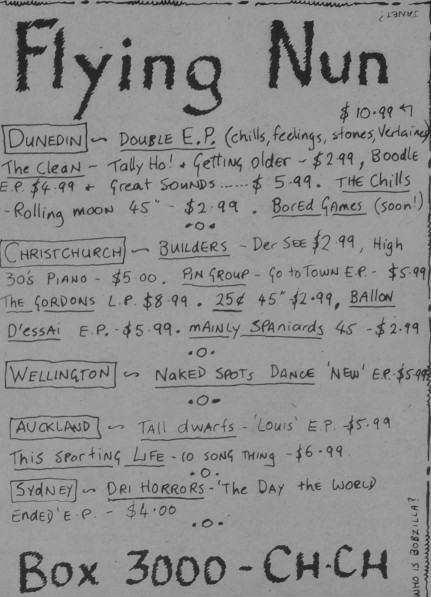 JANET?
Flying Nun
$10.99
DUNEDIN ~ DOUBLE E.P. (chills, feelings, stones, Verlaines)
The Clean - Tally Ho! + Getting older - $2.99, Boodle
E.P. $4.99 + Great SOUNDS...... $ 5.99. THE Chills
- Rolling moon 45" - $2.99. Bored GAMES (soon!)
·o·
CHRISTCHURCH ~ BUILDERS - Der SEE $2.99, High
30's PIANO - $5.00. PIN GROUP - Go to TOWN E.P. - $5.99
THE GORDONS L.P. $8.99. 25¢ 45" $2.99, BALLON
D'ESSAI E.P. - $5.99. MAINLY SPANIARDS 45 - $2.99
·o·
WELLINGTON ~ NAKED SPOTS DANCE 'NEW' E.P. $5.99
·o·
AUCKLAND ~ TALL DWARFS - 'Louis' E.P. - $5.99
This Sporting LIFE - 10 SONG THING - $6.99.
·o·
SYDNEY ~ DRI HORRORS - 'The DAY the WORLD
ENDED' E.P. - $4.00
·o·
Box 3000 - CH·CH
WHO IS BOBZILLA?